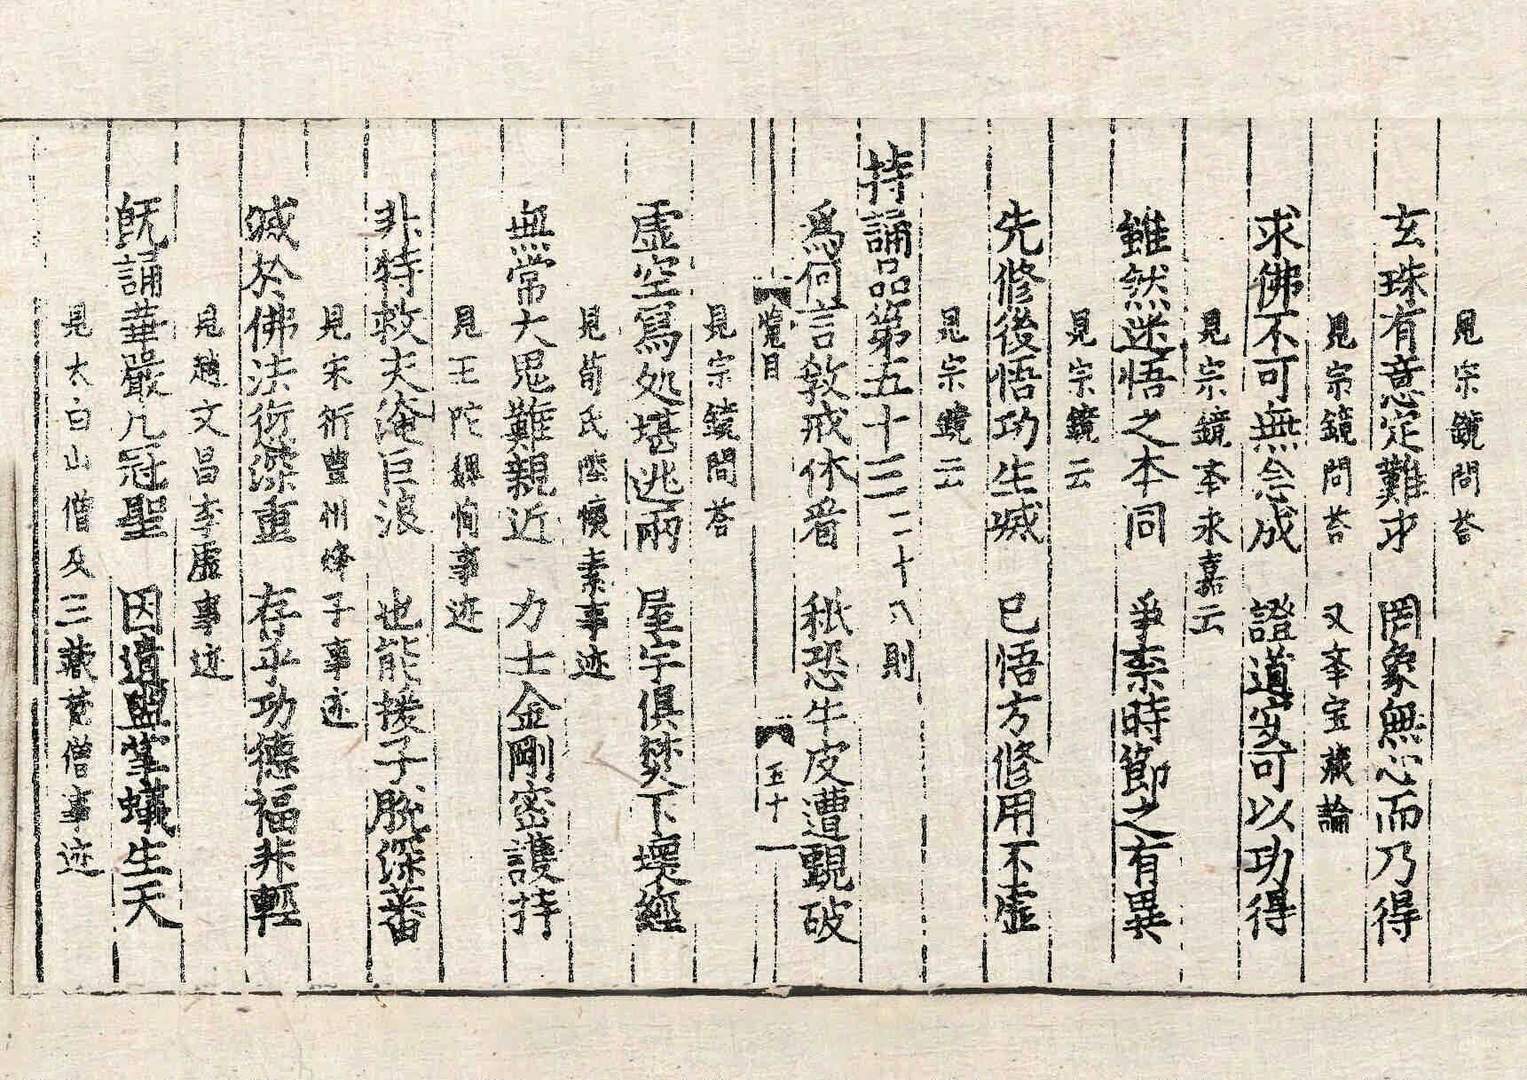 見宗鏡問荅
玄珠有意定難求　罔象無心而乃得
見宗鏡問荅　又夲宝藏論
求佛不可無念成　證道安可以功得
見宗鏡夲永嘉云
雖然迷悟之本同　爭柰時節之有異
見宗鏡云
先修後悟功生滅　已悟方修用不虛
見宗鏡云
持誦品第五十三二十八則
爲何言敎戒休看　秪恐牛皮遭覰破
覽目　五十一
見宗鏡問荅
虛空寫処堪逃雨　屋宇俱焚下壞經
見荀氏陸懷素事迹
無常大鬼難親近　力士金剛密護持
見王陀魏恂事迹
非特救夫淹巨浪　也能援子脫深番
見宋衍豐州烽子事迹
滅於佛法愆深重　存乎功德福非輕
見趙文昌李虛事迹
旣誦華嚴凡冠聖　因遺盥掌蟻生天
見太白山僧及三藏梵僧事迹